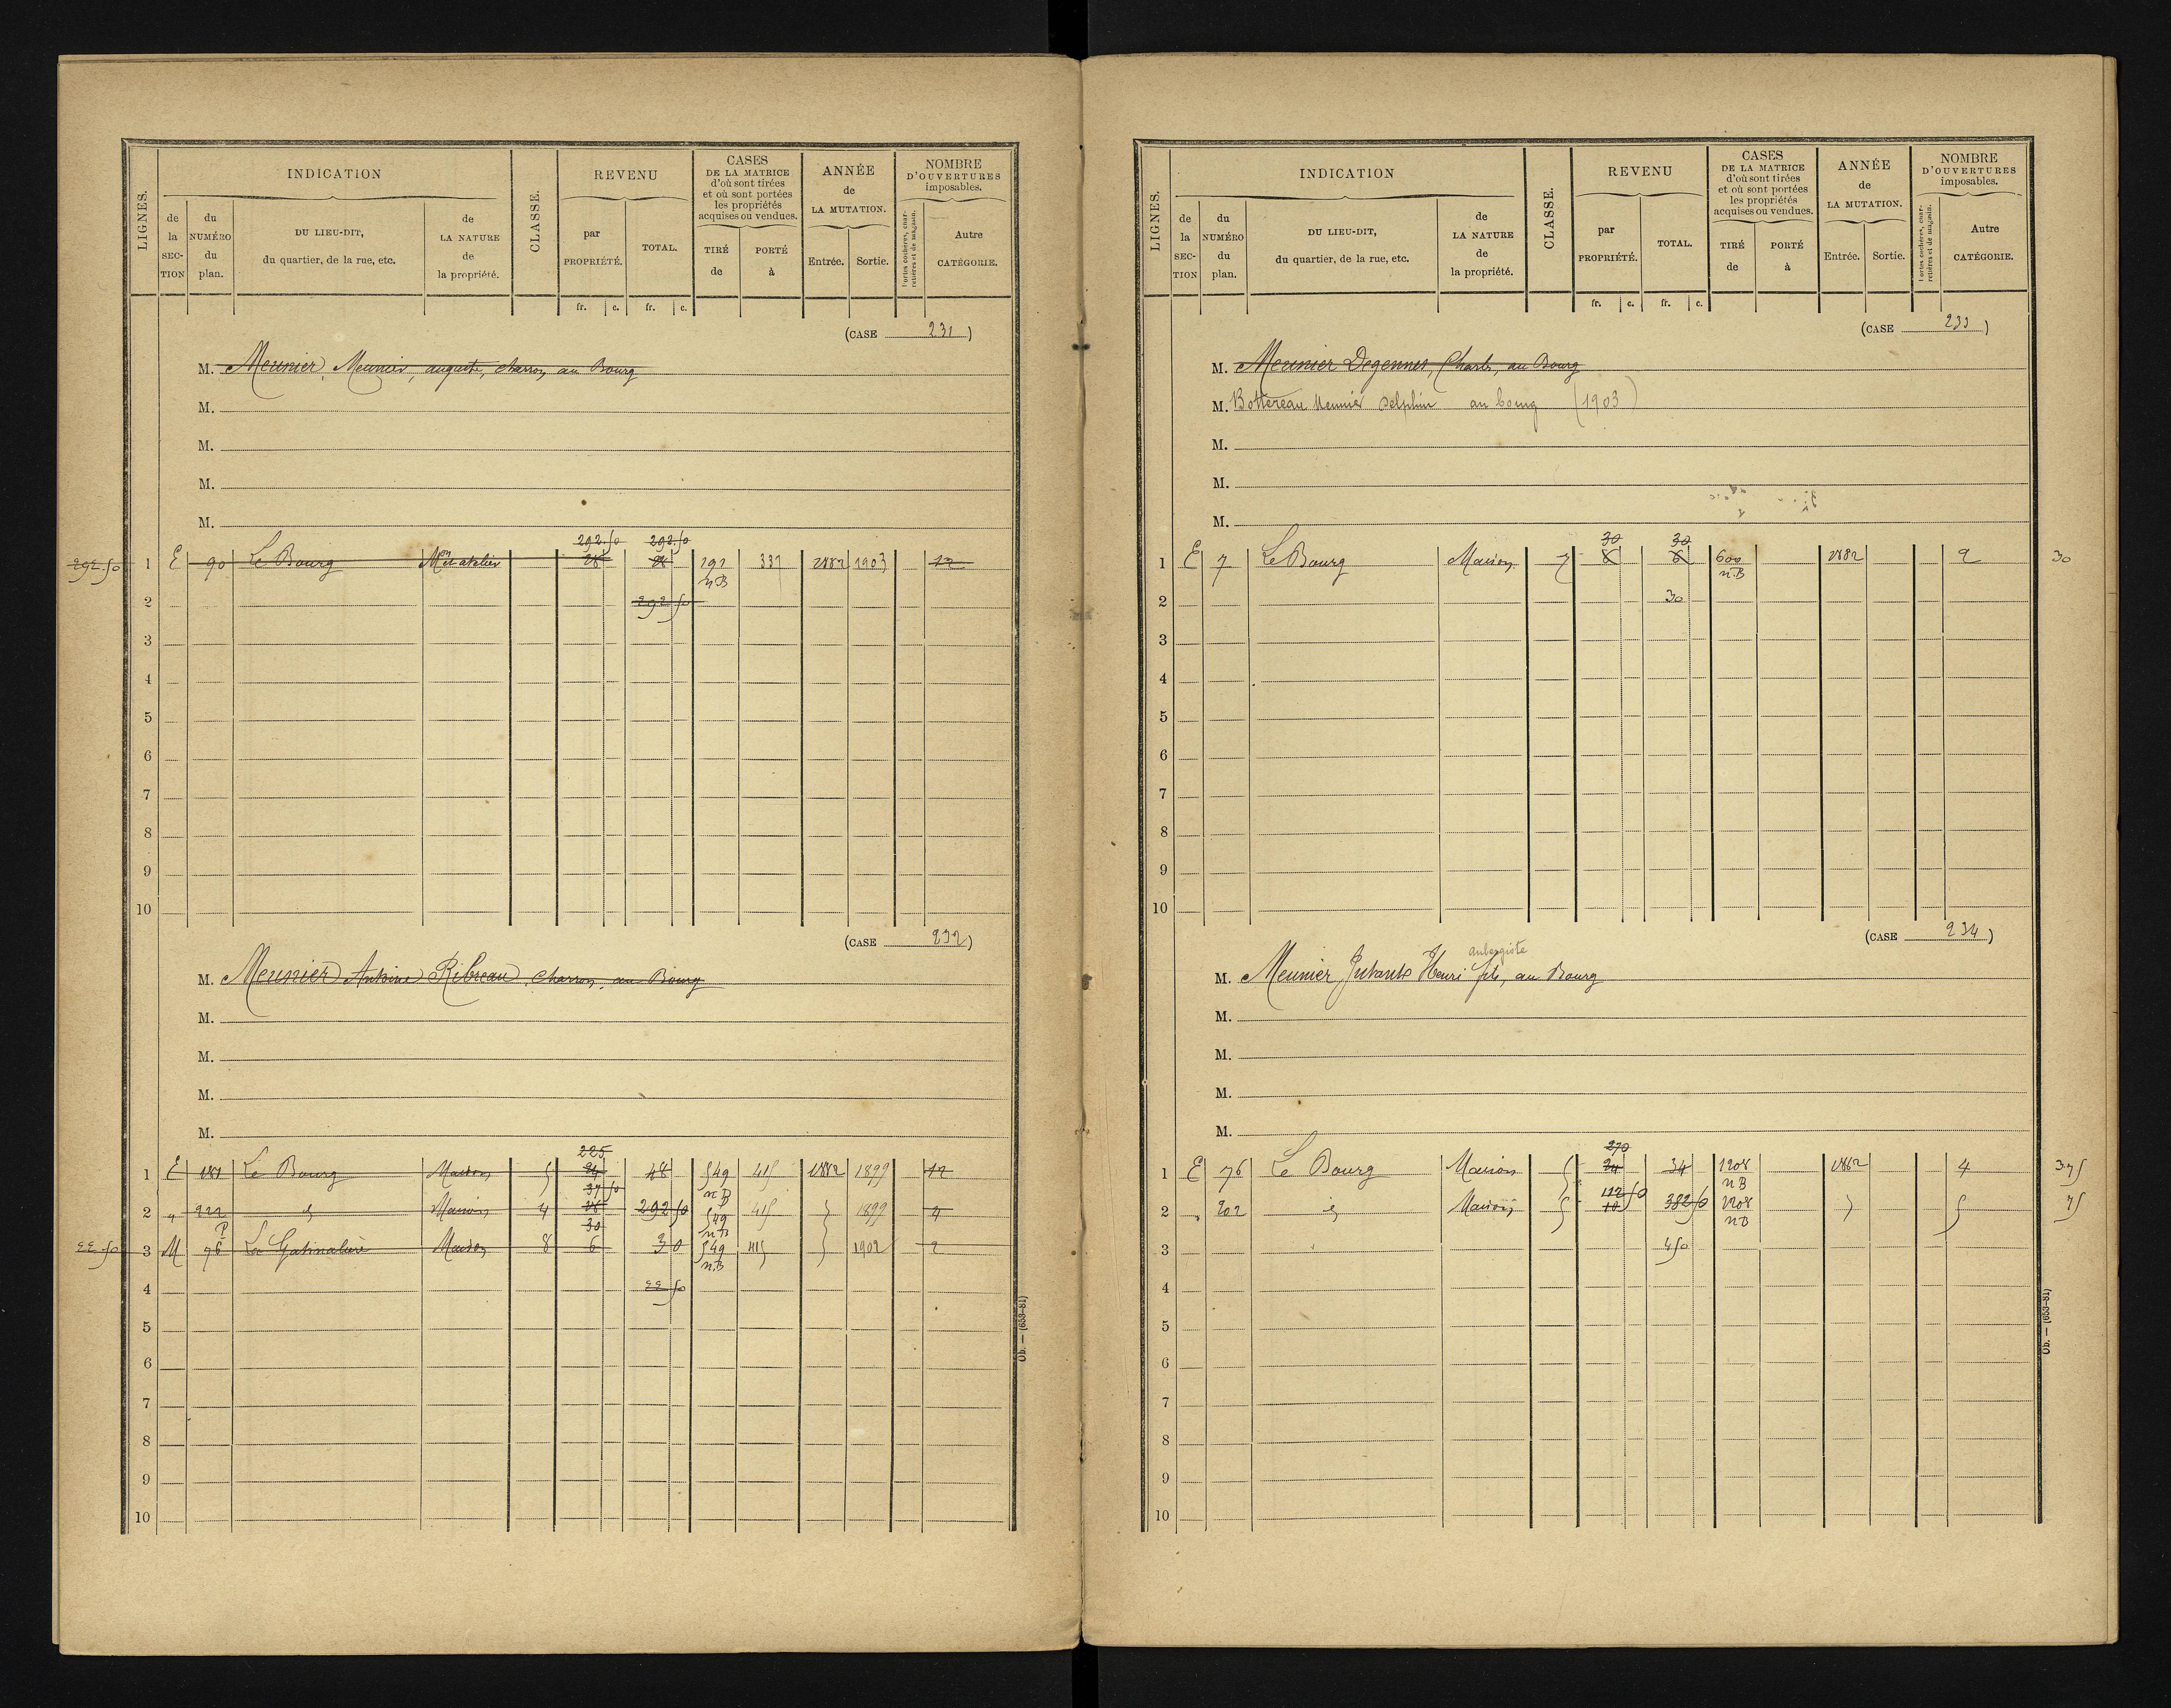 LIGNES. INDICATION CLASSE. REVENU CASES DE LA MATRICE d'où sont tirées et où sont portées les propriétés acquises ou vendues. ANNÉE de LA MUTATION. NOMBRE D'OUVERTURES imposables.
de la SEC-TION du NUMÉRO du plan. DU LIEU-DIT, du quartier, de la rue, etc. de LA NATURE de la propriété. par PROPRIÉTÉ. TOTAL. TIRÉ de PORTÉ à Entrée. Sortie. Portes cochères, char-retières et de magasin. Autre CATÉGORIE.
fr. c. fr. c.
(CASE 231)
M. Meunier, Meunier, auguste, charron, au Bourg
M.
M.
M.
M.
292.50 292.50
292.50 1 E 90 Le Bourg Mon et atelier 191 n.B 337 1882 1903 12
2 292 50
3
4
5
6
7
8
9
10
(CASE 232)
M. Meunier Antoine Ribreau, charron, au Bourg
M.
M.
M.
M.
225
1 E 181 Le Bourg Maison 5 48 549 n.B 415 1882 1899 12
37 50
2 " 222 d Maison 4 292 50 549 n.B 415 1899 4
30
22 50 3 M 76 P La Gatinalière Maison 8 6 30 549 n.B 415 1902 2
4 22 50
5
6
7
8
9
10
Ob. — (653-81)
LIGNES. INDICATION CLASSE. REVENU CASES DE LA MATRICE d'où sont tirées et où sont portées les propriétés acquises ou vendues. ANNÉE de LA MUTATION. NOMBRE D'OUVERTURES imposables.
de la SEC-TION du NUMÉRO du plan. DU LIEU-DIT, du quartier, de la rue, etc. de LA NATURE de la propriété. par PROPRIÉTÉ. TOTAL. TIRÉ de PORTÉ à Entrée. Sortie. Portes cochères, char-retières et de magasin. Autre CATÉGORIE.
fr. c. fr. c.
(CASE 233)
M. Meunier Degennes, Charles, au Bourg
M. Bottereau Meunier Delphin au bourg (1903)
M.
M.
M.
30 30
1 E 7 Le Bourg Maison 7 600 n.B 1882 2 30
2 30
3
4
5
6
7
8
9
10
(CASE 234)
aubergiste
M. Meunier Henri fils, au Bourg
M.
M.
M.
M.
270
1 E 76 Le Bourg Maison 5 34 34 1208 n.B 1882 4 375
112 50
2 " 202 d Maison 5 10 382 50 1208 n.B 5 75
3 450
4
5
6
7
8
9
10
Ob. — (653-81)